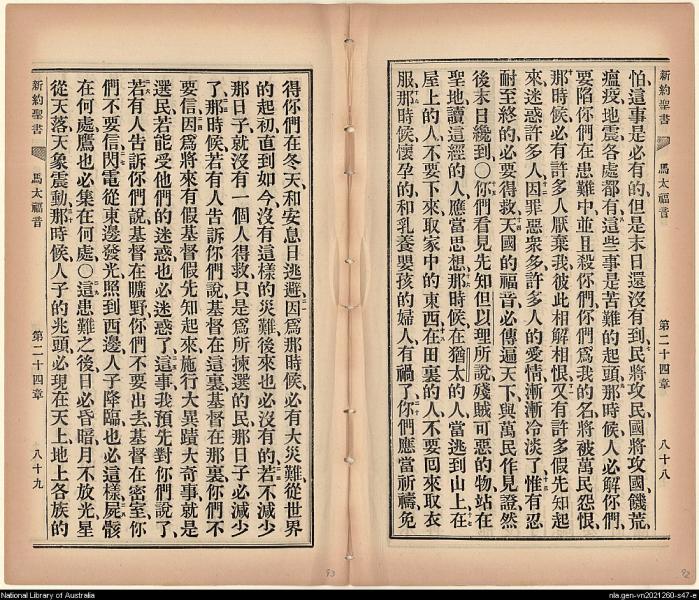 新約聖書 馬太福音 第二十四章 八十八
怕、這事是必有的、但是末日還沒有到、民將攻民、國將攻國、饑荒
瘟疫、地震、各處都有、這些事是苦難的起頭、那時候人必解你們、
要陷你們在患難中、並且殺你們、你們為我的名、將被萬民怨恨、
那時候必有許多人厭棄我、彼此相解相恨、又有許多假先知起
來、迷惑許多人、因罪惡衆多、許多人的愛情漸漸冷淡了、惟有忍
耐至終的、必要得救、天國的福音必傳遍天下、與萬民作見證、然
後末日纔到○你們看見先知但以理所說殘賊可惡的物、站在
聖地、讀這經的人應當思想、那時候在猶太的人當逃到山上、在
屋上的人、不要下來取家中的東西、在田裏的人、不要回來取衣
服、那時候懷孕的和乳養嬰孩的婦人有禍了、你們應當祈禱、免
新約聖書 馬太福音 第二十四章 八十九
得你們在冬天和安息日逃避、因為那時候必有大災難、從世界
的起初、直到如今、沒有這樣的災難、後來也必沒有的、若不減少
那日子、就沒有一個人得救、只是為所揀選的民、那日子必減少
了、那時候若有人告訴你們說、基督在這裏、基督在那裏、你們不
要信、因為將來有假基督假先知起來、施行大異蹟、大奇事、就是
選民、若能受他們的迷惑、也必迷惑了、這事我預先對你們說了、
若有人告訴你們說、基督在曠野、你們不要出去、基督在密室、你
們不要信、閃電從東邊發光、照到西邊、人子降臨、也必這樣、屍骸
在何處、鷹也必集在何處○這患難之後、日必昏暗、月不放光、星
從天落、天象震動、那時候人子的兆頭必現在天上、地上各族的
93
92
National Library of Australia
nla.gen-vn2021260-s47-e